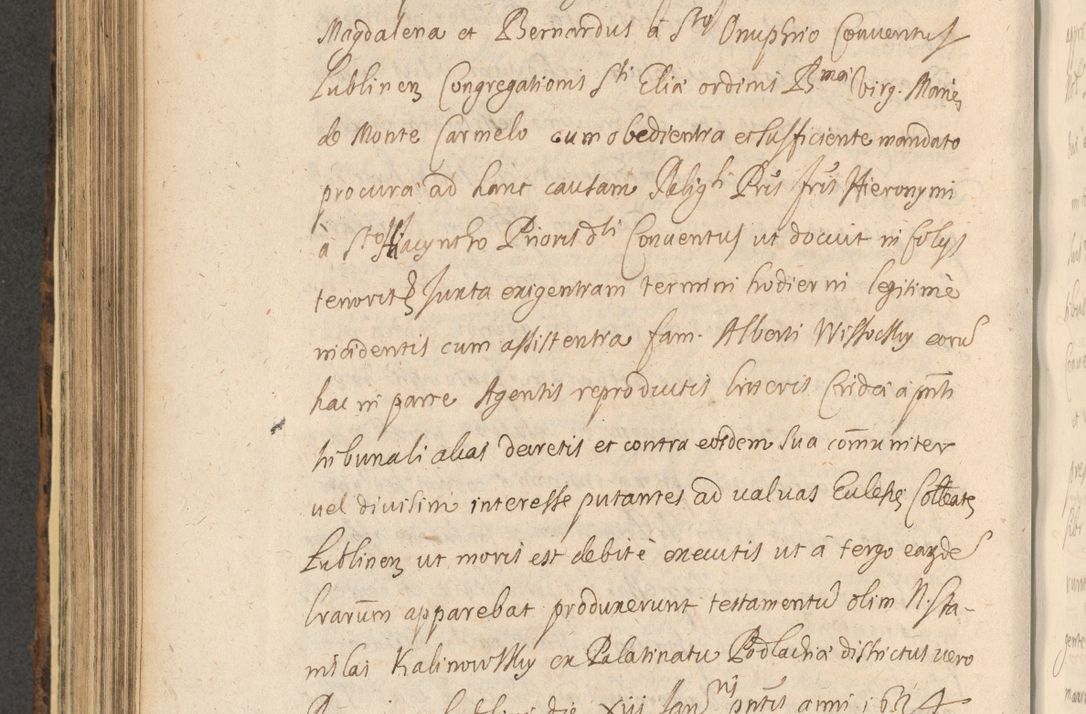 Magdalena et Bernardus à Sto Onuphrio Conventus
Lublinen Congregationis Sti Eliæ ordinis B mæ Virg. Mariæ
de Monte Carmelo cum obedientia et sufficiente mandato
procuræ ad hanc causam Religsi Pris fris Hieronymi
à Sto Hiacyntho Prioris dti Conventus ut docuit in copys
tenoris Juxta exigentiam termini hodierni legitimè
incidentis cum assistentia fam. Alberti Wissocky eoru
hac in parte Agentis reproductis literis Cridæ a pnti
tribunali alias decretis et contra eosdem sua comuniter
vel divisim interesse putantes ad valvas Eccles Colleate
Lublinen ut moris est debitè executis ut à tergo earunde
lrarum apparebat produxerunt testamentu olim N. Sta-
nislai Kalinowsky ex Palatinatu Podlachiæ districtus vero
die XIII Jan rij pntis anni